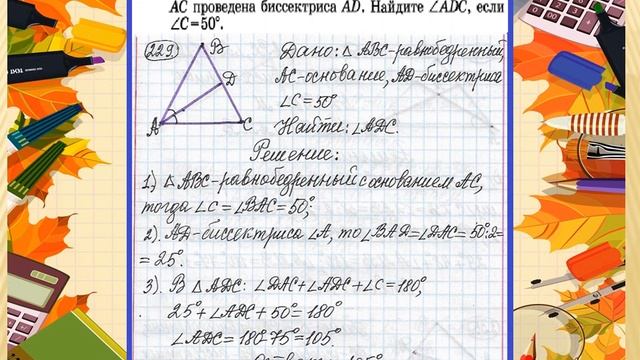 AC проведена биссектриса AD. Найдите ∠ADC, если
∠C = 50°.
229
B
D
A
C
Дано: △ ABC-равнобедренный,
AC-основание, AD-биссектриса
∠C = 50°
Найти: ∠ADC.
Решение:
1) △ ABC-равнобедренный с основанием AC,
тогда ∠C = ∠BAC = 50°;
2). AD-биссектриса ∠A, то ∠BAD=∠DAC= 50°:2=
= 25°.
3). В △ ADC: ∠DAC+∠ADC+∠C=180°,
25°+∠ADC+50°=180°
∠ADC=180°-75°=105°.